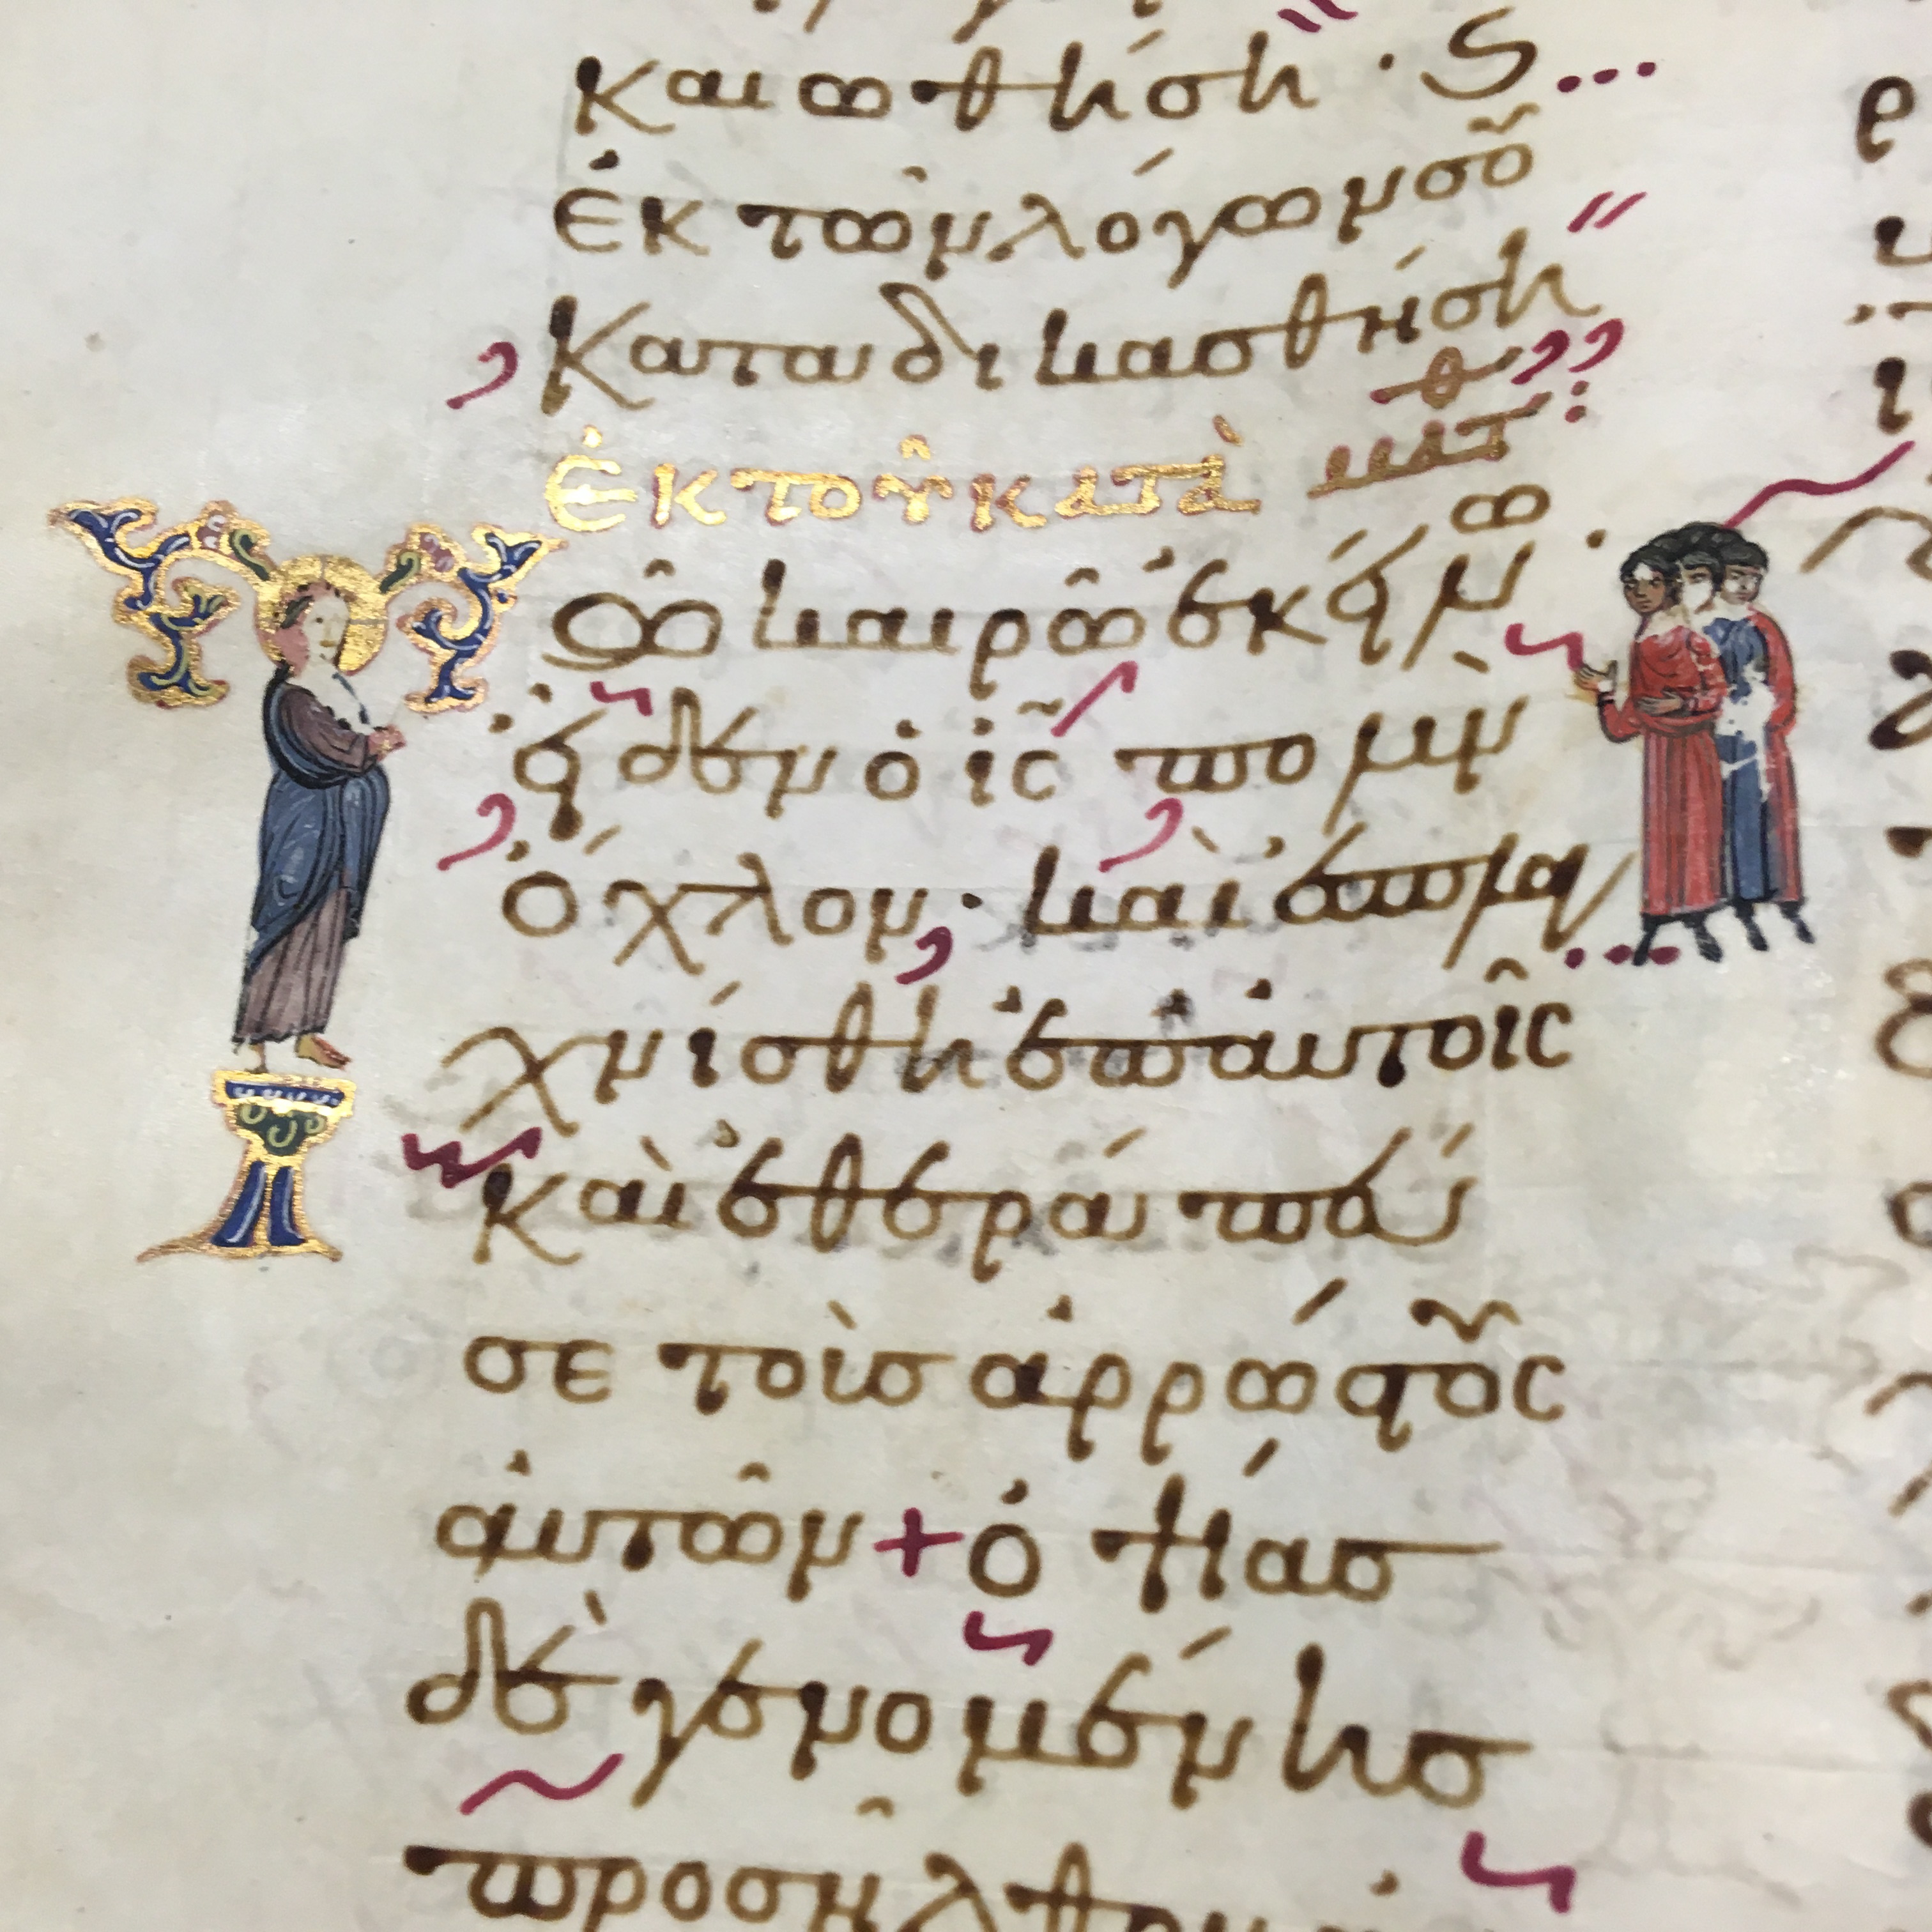 καιωθήση · ϛ
ἐκ τῶν λόγων σοῦ
καταδικασθήση
ἐκ τοῦ κατὰ ματθ
ῶ καιρῶ ἐκείνω
εἶδεν ὁ ις̅ πολὺν
ὄχλον · καὶ ἐσπλα
χνίσθη ἐπ' αὐτοῖς
καὶ ἐθεράπευ
σε τοὺς ἀρρώστους
αὐτῶν + ὀψίας
δὲ γενομένης
προσῆλθον